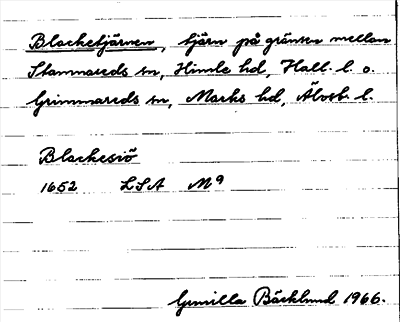 Blacketjärnen, tjärn på gränsen mellan
Stamnareds sn, Himle hd, Hall. l. o.
Grimmareds sn, Marks hd, Älvsb. l.
Blackesiö
1652 LSA Mª
Gunilla Bäcklund 1966.